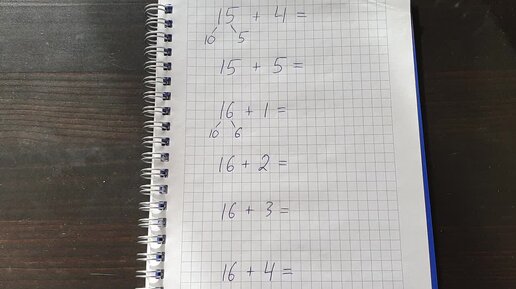 15 + 4 =
10 5
15 + 5 =
16 + 1 =
10 6
16 + 2 =
16 + 3 =
16 + 4 =